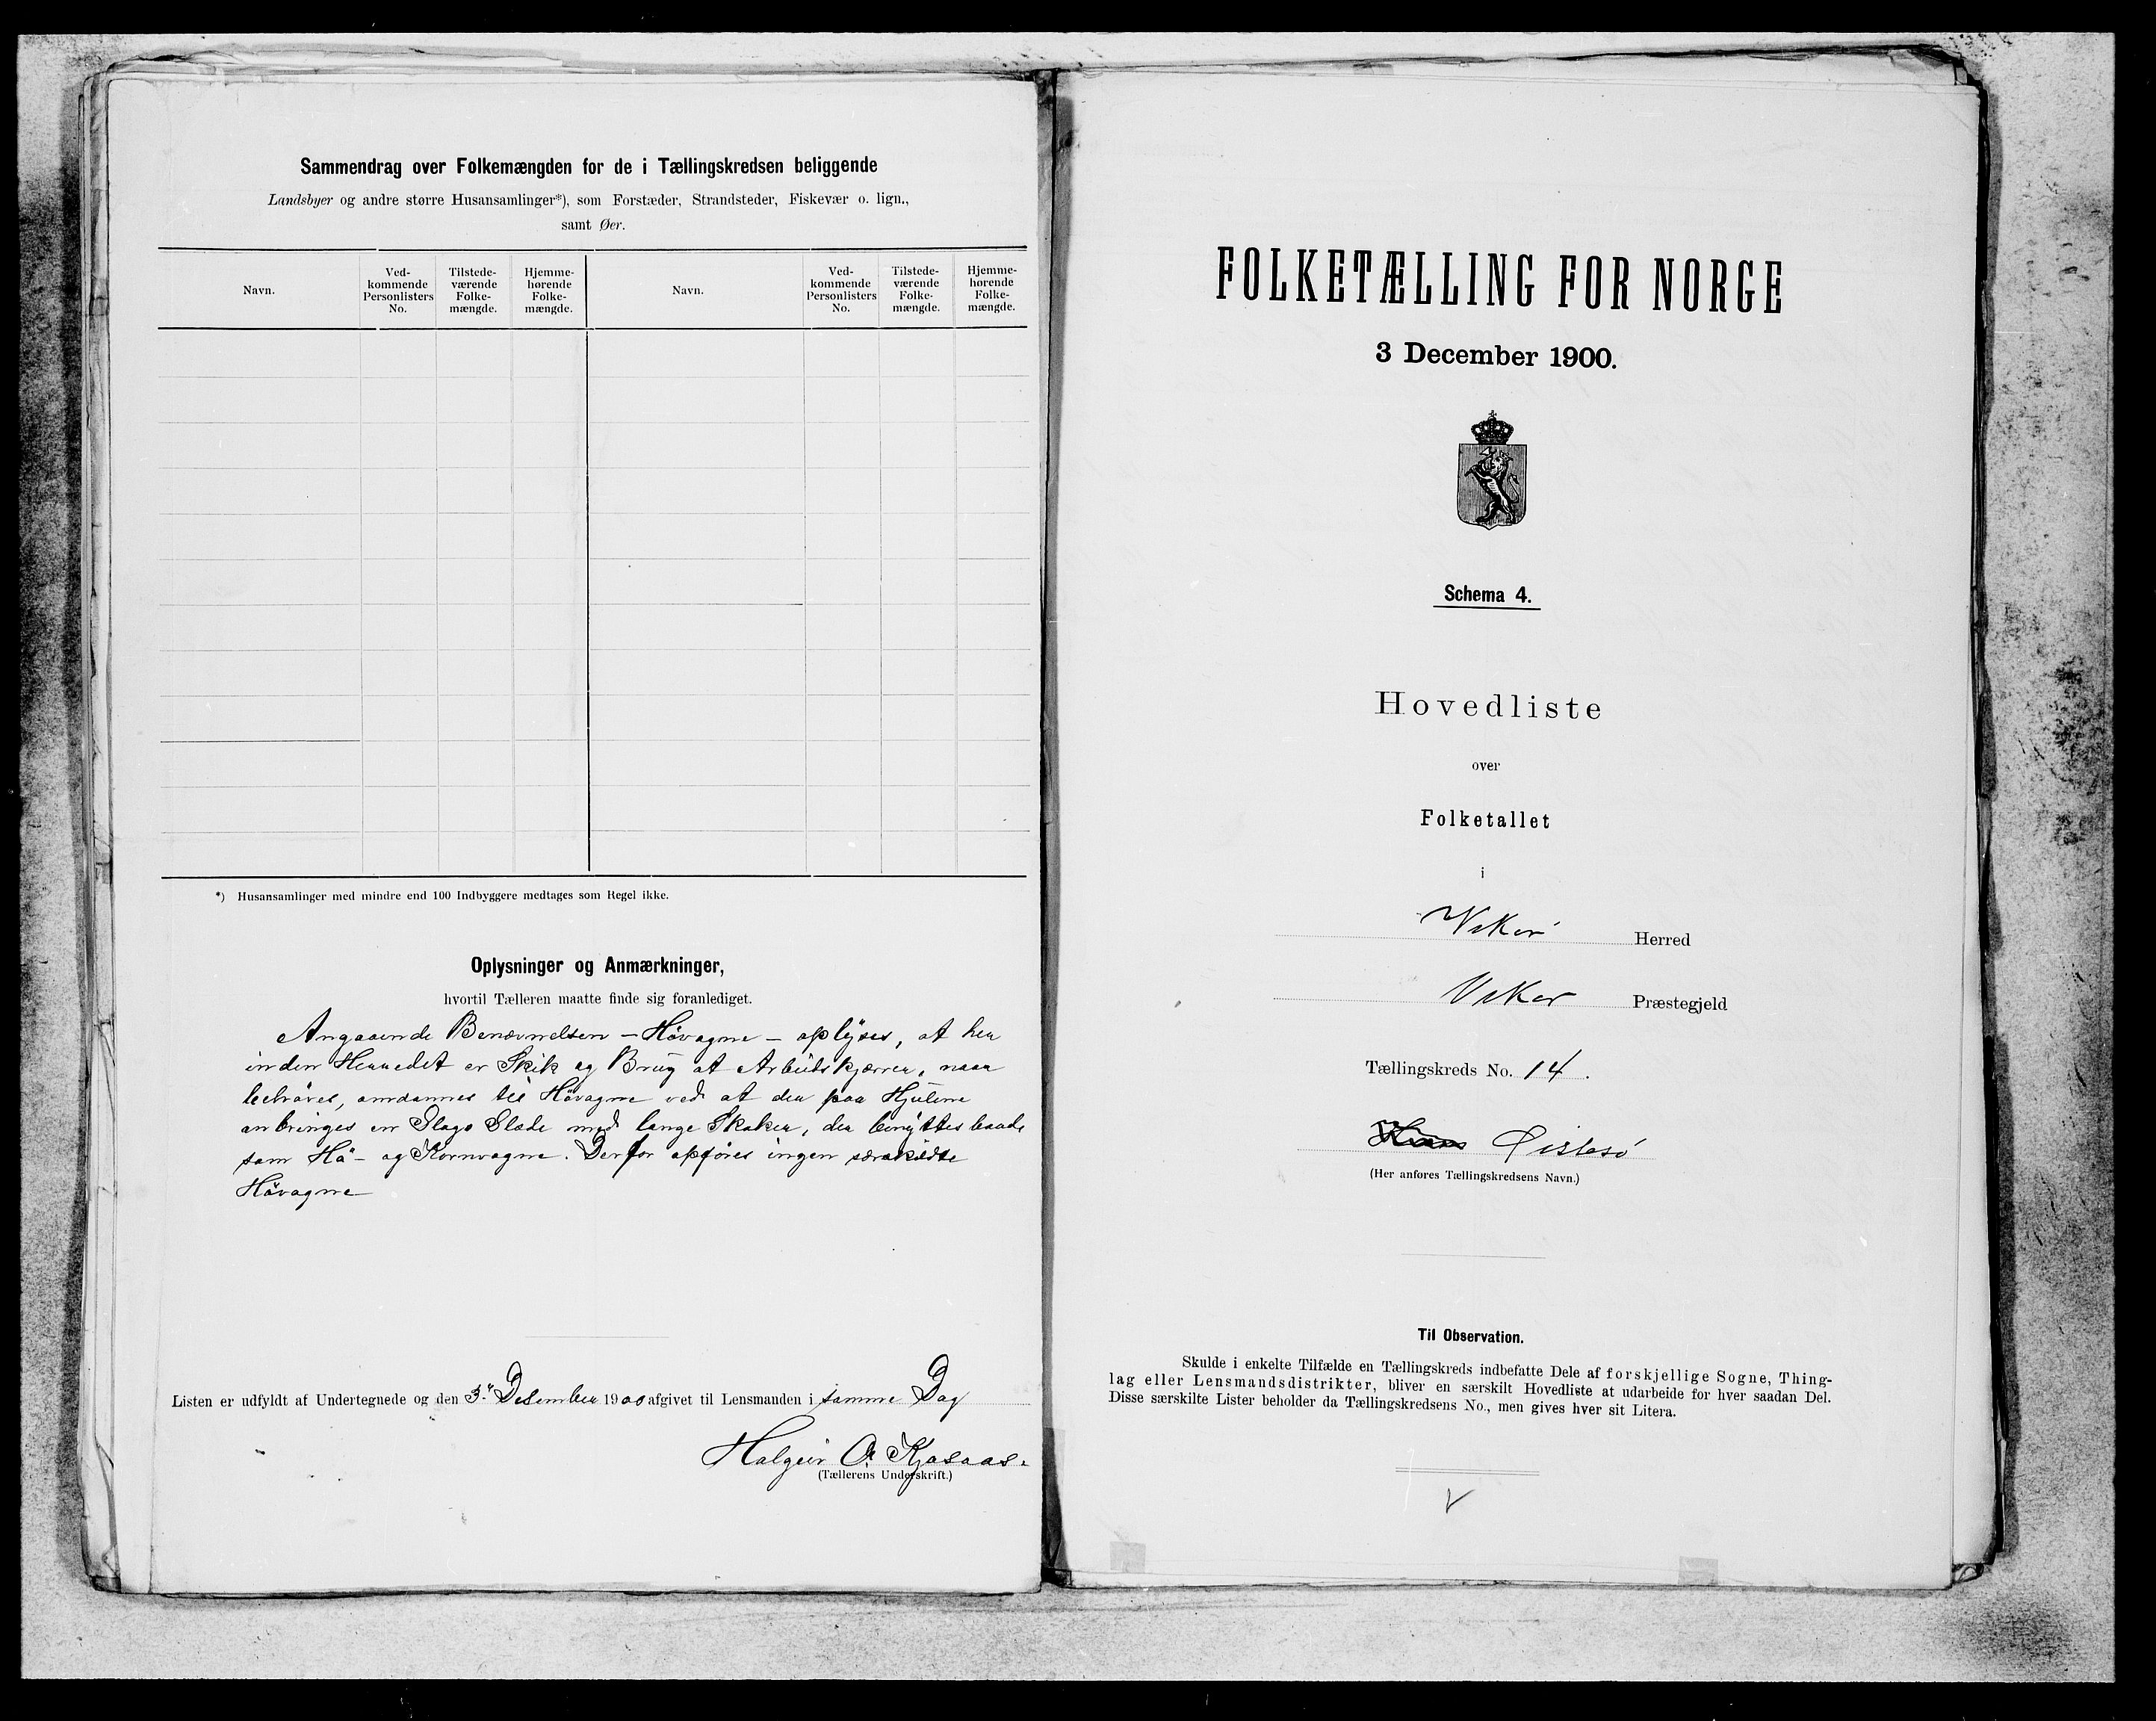 Sammendrag over Folkemængden for de i Tællingskredsen beliggende
Landsbyer og andre større Husansamlinger*), som Forstæder, Strandsteder, Fiskevær o. lign.,
samt Øer.
Navn. Ved-kommende Personlisters No. Tilstede-værende Folke-mængde. Hjemme-hørende Folke-mængde. Navn. Ved-kommende Personlisters No. Tilstede-værende Folke-mængde. Hjemme-hørende Folke-mængde.
*) Husansamlinger med mindre end 100 Indbyggere medtages som Regel ikke.
Oplysninger og Anmærkninger,
hvortil Tælleren maatte finde sig foranlediget.
Angaaende Benævnelsen – Høvagne – oplyses, at her
inden Herredet er Skik og Brug at Arbeidskjærrer, naar
behøves, omdannes til Høvagne ved at der paa Hjulene
anbringes en Slags Slæde med lange Skaker, der benyttes baade
som Hø- og Kornvagne. Derfor opføres ingen særskildte
Høvagne
Listen er udfyldt af Undertegnede og den 3. Desember 1900 afgivet til Lensmanden i samme Dag
Halgeir O. Kjosaas.
(Tællerens Underskrift.)
FOLKETÆLLING FOR NORGE
3 December 1900.
Schema 4.
Hovedliste
over
Folketallet
i
Vikør Herred
Vikør Præstegjeld
Tællingskreds No. 14.
Østesø
(Her anføres Tællingskredsens Navn.)
Til Observation.
Skulde i enkelte Tilfælde en Tællingskreds indbefatte Dele af forskjellige Sogne, Thing-
lag eller Lensmandsdistrikter, bliver en særskilt Hovedliste at udarbeide for hver saadan Del.
Disse særskilte Lister beholder da Tællingskredsens No., men gives hver sit Litera.